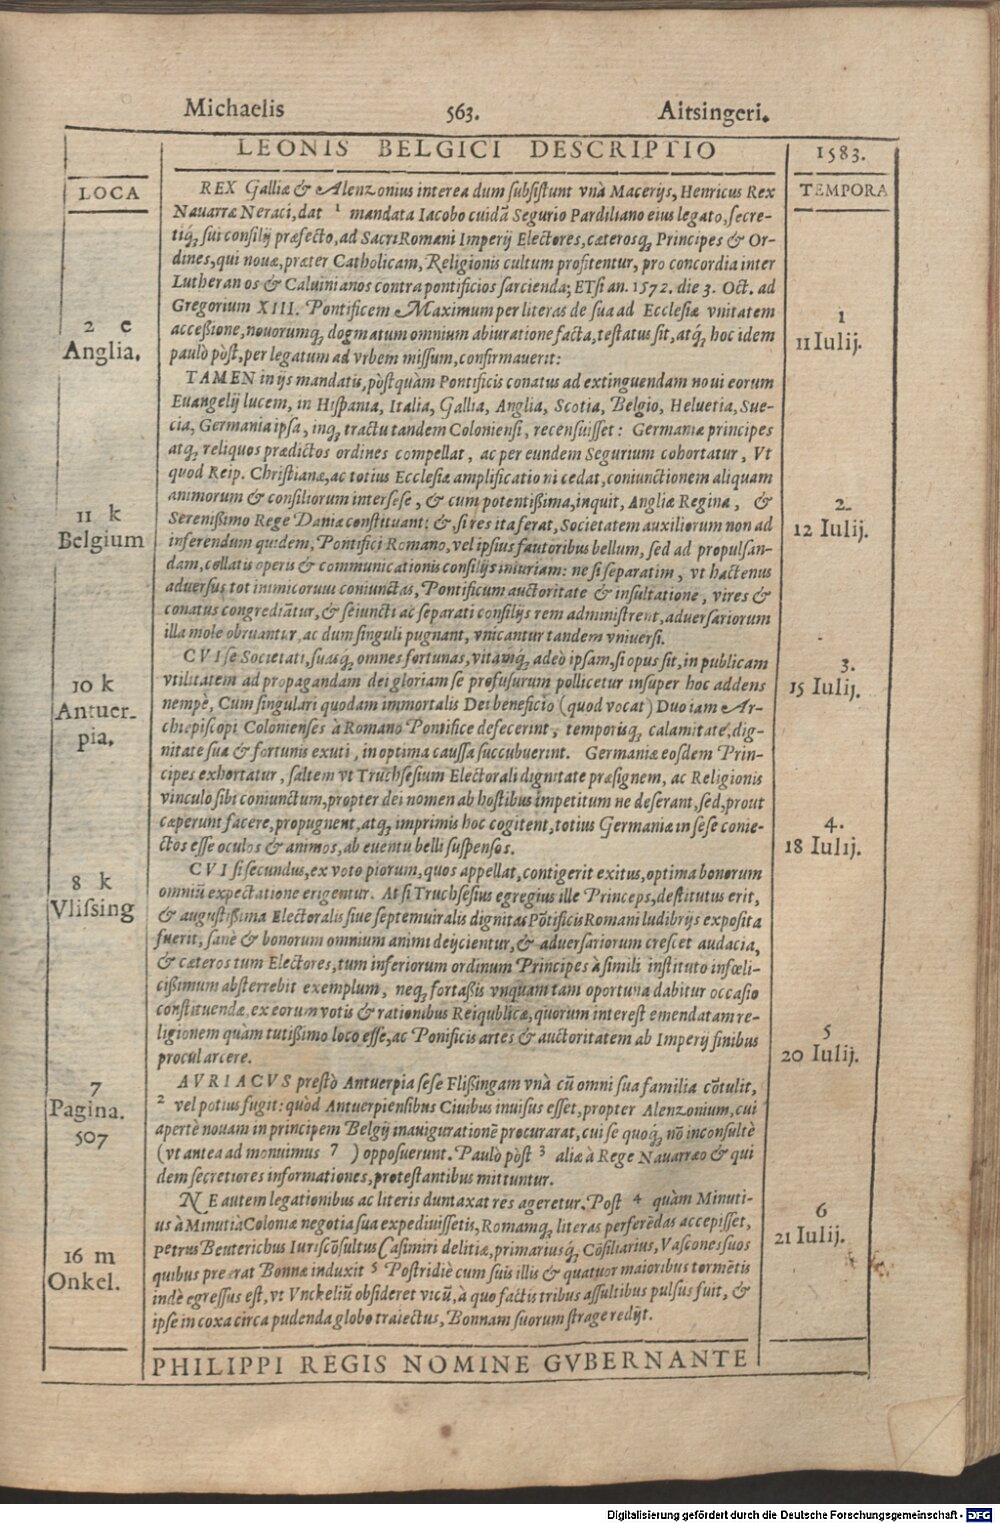 Michaelis 563. Aitsingeri.
LEONIS BELGICI DESCRIPTIO
1583.
LOCA
TEMPORA
REX Galliæ & Alenzonius interea dum subsistunt vnà Macerijs, Henricus Rex
Nauarræ Neraci, dat 1 mandata Iacobo cuidã Segurio Pardiliano eius legato, secre-
tiq́; sui consilij præfecto, ad Sacri Romani Imperij Electores, cæterosq; Principes & Or-
dines, qui nouæ, præter Catholicam, Religionis cultum profitentur, pro concordia inter
Lutheranos & Caluinianos contra pontificios sarcienda; ETsi an. 1572. die 3. Oct. ad
Gregorium XIII. Pontificem Maximum per literas de sua ad Ecclesiæ vnitatem
accessione, nouorumq; dogmatum omnium abiuratione facta, testatus sit, atq́; hoc idem
paulò pòst, per legatum ad vrbem missum, confirmauerit:
TAMEN in ijs mandatis, pòstquàm Pontificis conatus ad extinguendam noui eorum
Euangelij lucem, in Hispania, Italia, Gallia, Anglia, Scotia, Belgio, Heluetia, Sue-
cia, Germania ipsa, inq; tractu tandem Coloniensi, recensuisset: Germaniæ principes
atq; reliquos prædictos ordines compellat, ac per eundem Segurium cohortatur, Vt
quod Reip. Christianæ, ac totius Ecclesiæ amplificationi cedat, coniunctionem aliquam
animorum & consiliorum intersese, & cum potentissima, inquit, Angliæ Regina, &
Serenissimo Rege Daniæ constituant: &, si res ita ferat, Societatem auxiliorum non ad
inferendum quidem, Pontifici Romano, vel ipsius fautoribus bellum, sed ad propulsan-
dam, collatis operis & communicationis consilijs iniuriam: ne si separatim, vt hactenus
aduersus tot inimicorum coniunctas, Pontificum auctoritate & insultatione, vires &
conatus congrediãtur, & seiuncti ac separati consilijs rem administrent, aduersariorum
illa mole obruantur, ac dum singuli pugnant, vnicantur tandem vniuersi.
CVI se Societati, suasq́; omnes fortunas, vitamq́; adeò ipsam, si opus sit, in publicam
vtilitatem ad propagandam dei gloriam se profusurum pollicetur insuper hoc addens
nempè, Cum singulari quodam immortalis Dei beneficio (quod vocat) Duo iam Ar-
chiepiscopi Colonienses à Romano Pontifice defecerint, temporisq; calamitate, dig-
nitate sua & fortunis exuti, in optima caussa succubuerint. Germaniæ eosdem Prin-
cipes exhortatur, saltem vt Truchsesium Electorali dignitate præsignem, ac Religionis
vinculo sibi coniunctum, propter dei nomen ab hostibus impetitum ne deserant, sed, prout
cæperunt facere, propugnent, atq; imprimis hoc cogitent, totius Germaniæ in sese conie-
ctos esse oculos & animos, ab euentu belli suspensos.
CVI si secundus, ex voto piorum, quos appellat, contigerit exitus, optima bonorum
omniũ expectatione erigentur. At si Truchsesius egregius ille Princeps, destitutus erit,
& augustissima Electoralis siue septemuiralis dignitas Põtificis Romani ludibrijs exposita
fuerit, sanè & bonorum omnium animi deijcientur, & aduersariorum crescet audacia,
& cæteros tum Electores, tum inferiorum ordinum Principes à simili instituto infœli-
cissimum absterrebit exemplum, neq; fortassis vnquam tam oportuna dabitur occasio
constituendæ, ex eorum votis & rationibus Reiqublicæ, quorum interest emendatam re-
ligionem quàm tutissimo loco esse, ac Ponificis artes & auctoritatem ab Imperij finibus
procul arcere.
AVRIACVS prestò Antuerpia sese Flissingam vnà cũ omni sua familia cõtulit,
2 vel potius fugit: quòd Antuerpiensibus Ciuibus inuisus esset, propter Alenzonium, cui
apertè nouam in principem Belgij inauigurationẽ procurarat, cui se quoq́; nõ inconsultè
(vt antea ad monuimus 7 ) opposuerunt. Paulò pòst 3 aliæ à Rege Nauarræo & qui
dem secretiores informationes, protestantibus mittuntur.
NE autem legationibus ac literis duntaxat res ageretur. Post 4 quàm Minuti-
us à Minutiâ Coloniæ negotia sua expediuissetis, Romamq; literas perferẽdas accepisset,
Petrus Beuterichus Iuriscõsultus Casimiri delitiæ, primariusq́; Cõsiliarius, Vascones suos
quibus preerat Bonnæ induxit 5 Postridiè cum suis illis & quatuor maioribus tormẽtis
indè egressus est, vt Vnckeliũ obsideret vicũ, à quo factis tribus assultibus pulsus fuit, &
ipse in coxa circa pudenda globo traiectus, Bonnam suorum strage redijt.
PHILIPPI REGIS NOMINE GVBERNANTE
2 e
Anglia.
11 k
Belgium
10 k
Antuer-
pia.
8 k
Vlissing
7
Pagina.
507
16 m
Onkel.
1
11 Iulij.
2
12 Iulij.
3.
15 Iulij.
4.
18 Iulij.
5
20 Iulij.
6
21 Iulij.
Digitalisierung gefördert durch die Deutsche Forschungsgemeinschaft - DFG